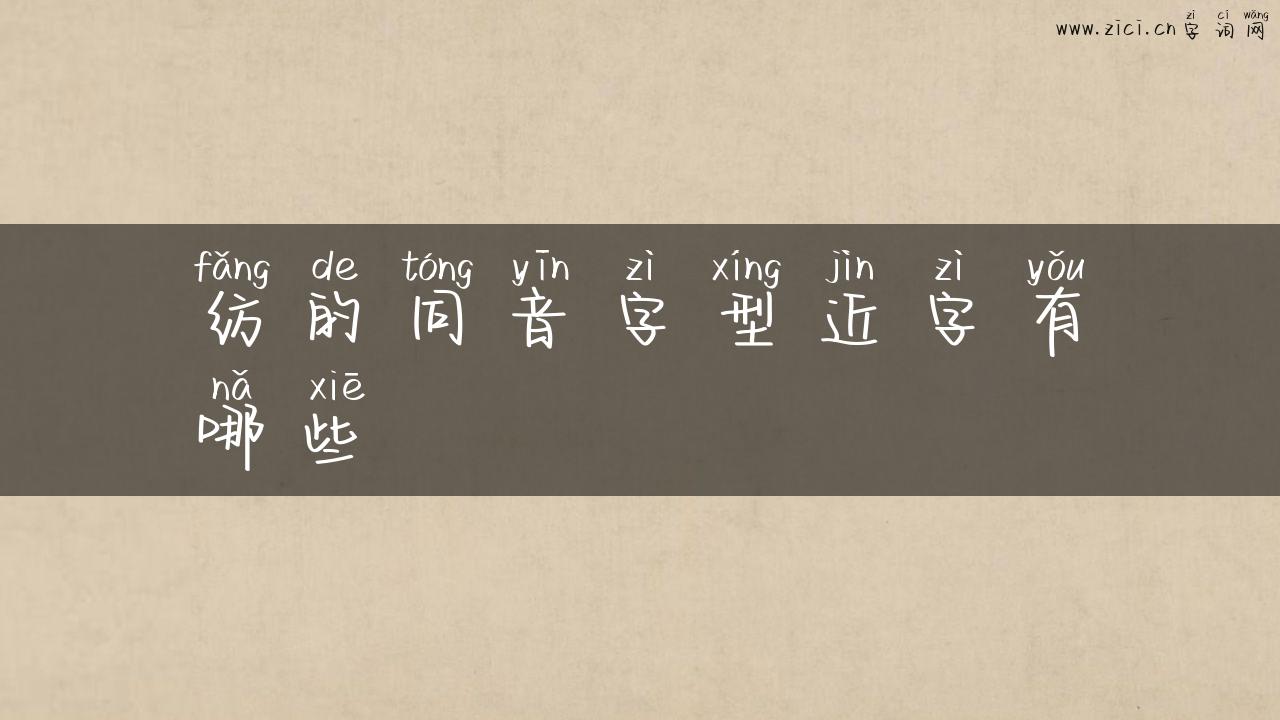 zì cí wǎng
www.zici.cn 字词网
fǎng de tóng yīn zì xíng jìn zì yǒu
纺的同音字型近字有
nǎ xiē
哪些